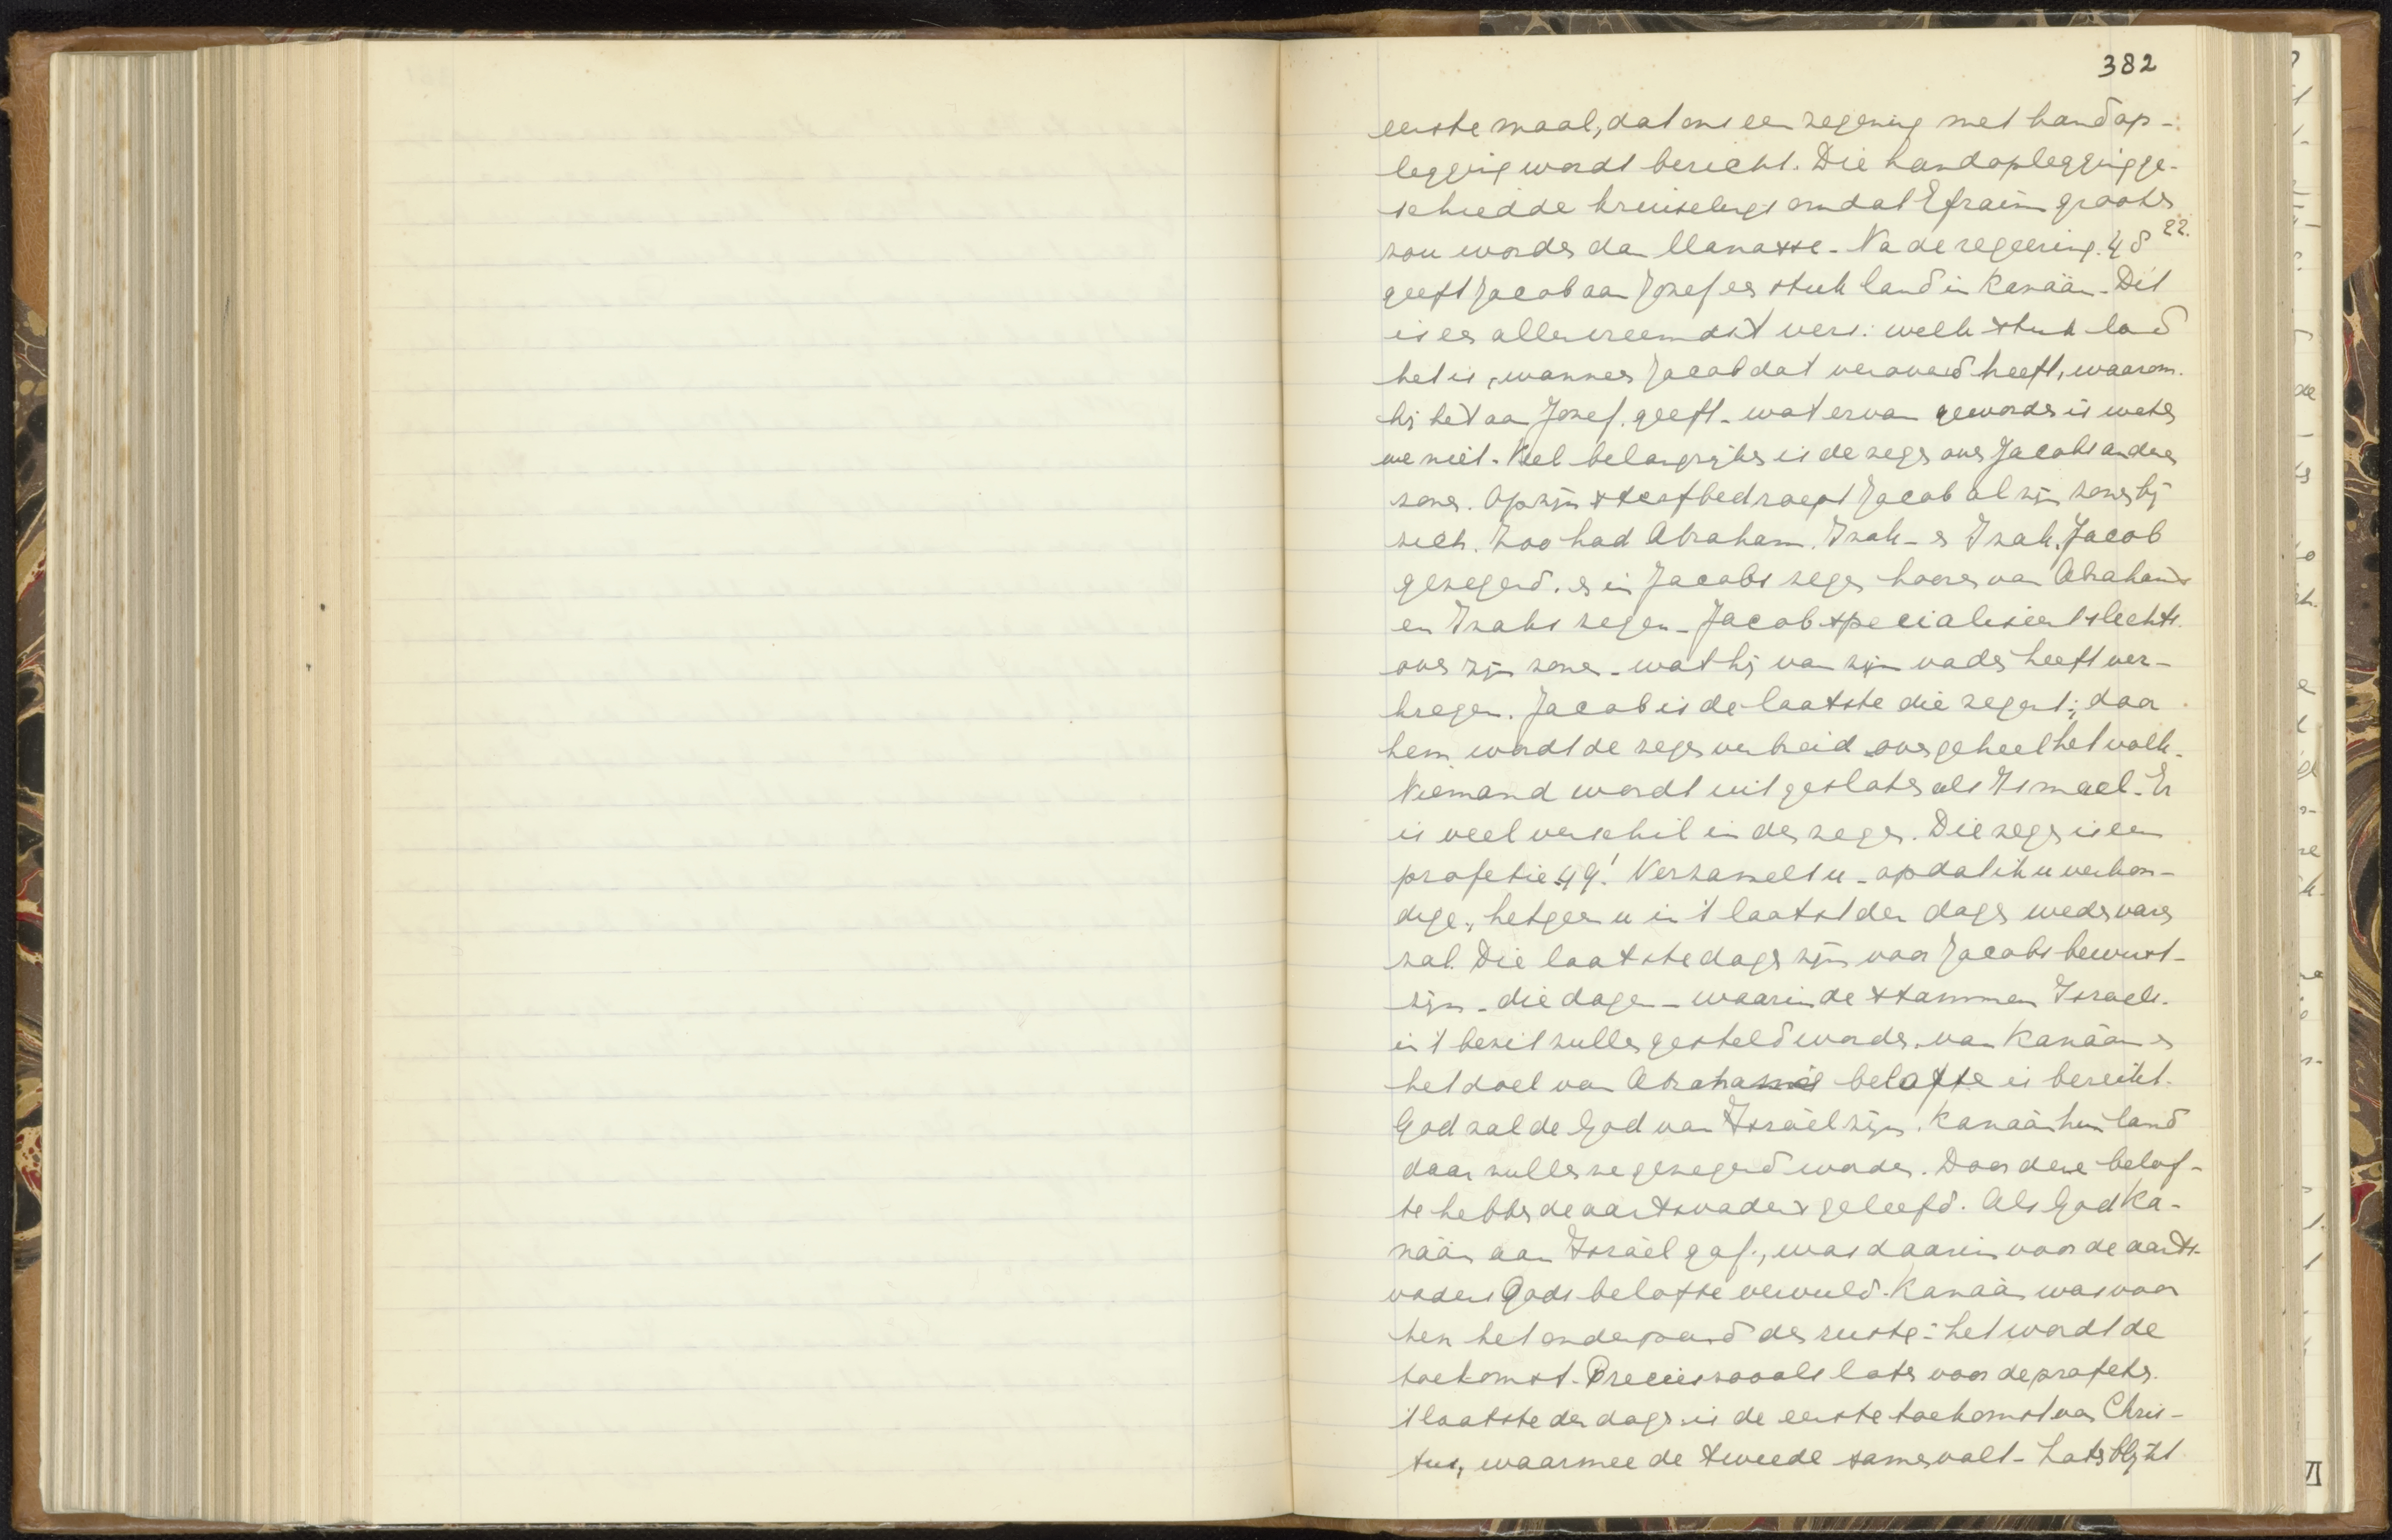 382
eerste maal, dat ons een zegening met handop-
legging wordt bericht. Die handoplegging ge-
schiedde kruiselings omdat Efraim grooter
zou worden dan Manasse. Na de zegening. 48 22.
geeft Jacob aan Jozef een stuk land in Kanaän. Dit
is een allervreemdst vers: welk stuk land
het is, wanneer Jacob dat veroverd heeft, waarom
hij het aan Jozef geeft, wat ervan geworden is weten
we niet. Veel belangrijker is de zegen over Jacobs andere
zonen. Op zijn sterfbed roept Jacob al zijn zonen bij
zich. Zoo had Abraham Izak en Izak Jacob
gezegend. en in Jacobs zegen hooren van Abrahams
en Izaks zegen. Jacob specialiseert slechts
over zijn zonen wat hij van zijn vader heeft ver-
kregen. Jacob is de laatste die zegent; door
hem wordt de zegen verbreid over geheel het volk.
Niemand wordt uitgesloten als Ismael. Er
is veel verschil in den zegen. Die zegen is een
profetie 49.1 Verzamelt u, opdat ik u verkon-
dige, hetgeen u in 't laatst der dagen wedervaren
zal. Die laatste dagen zijn voor Jacobs bewust-
zijn die dagen waarin de stammen Israels
in 't bezit zullen gesteld worden van Kanaän en
het doel van Abrahams belofte is bereikt.
God zal de God van Israël zijn. Kanaän hun land
daar zullen ze gezegend worden. Door deze belof-
te hebben de aartsvaders geleefd. Als God Ka-
naän aan Israël gaf, was daarin voor de aarts-
vaders Gods belofte vervuld. Kanaän was voor
hen het onderpand der ruste: het wordt de
toekomst. Precies zooals later voor de profeten.
't laatste der dagen is de eerste toekomst van Chris-
tus, waarmee de tweede samenvalt. Later blijkt